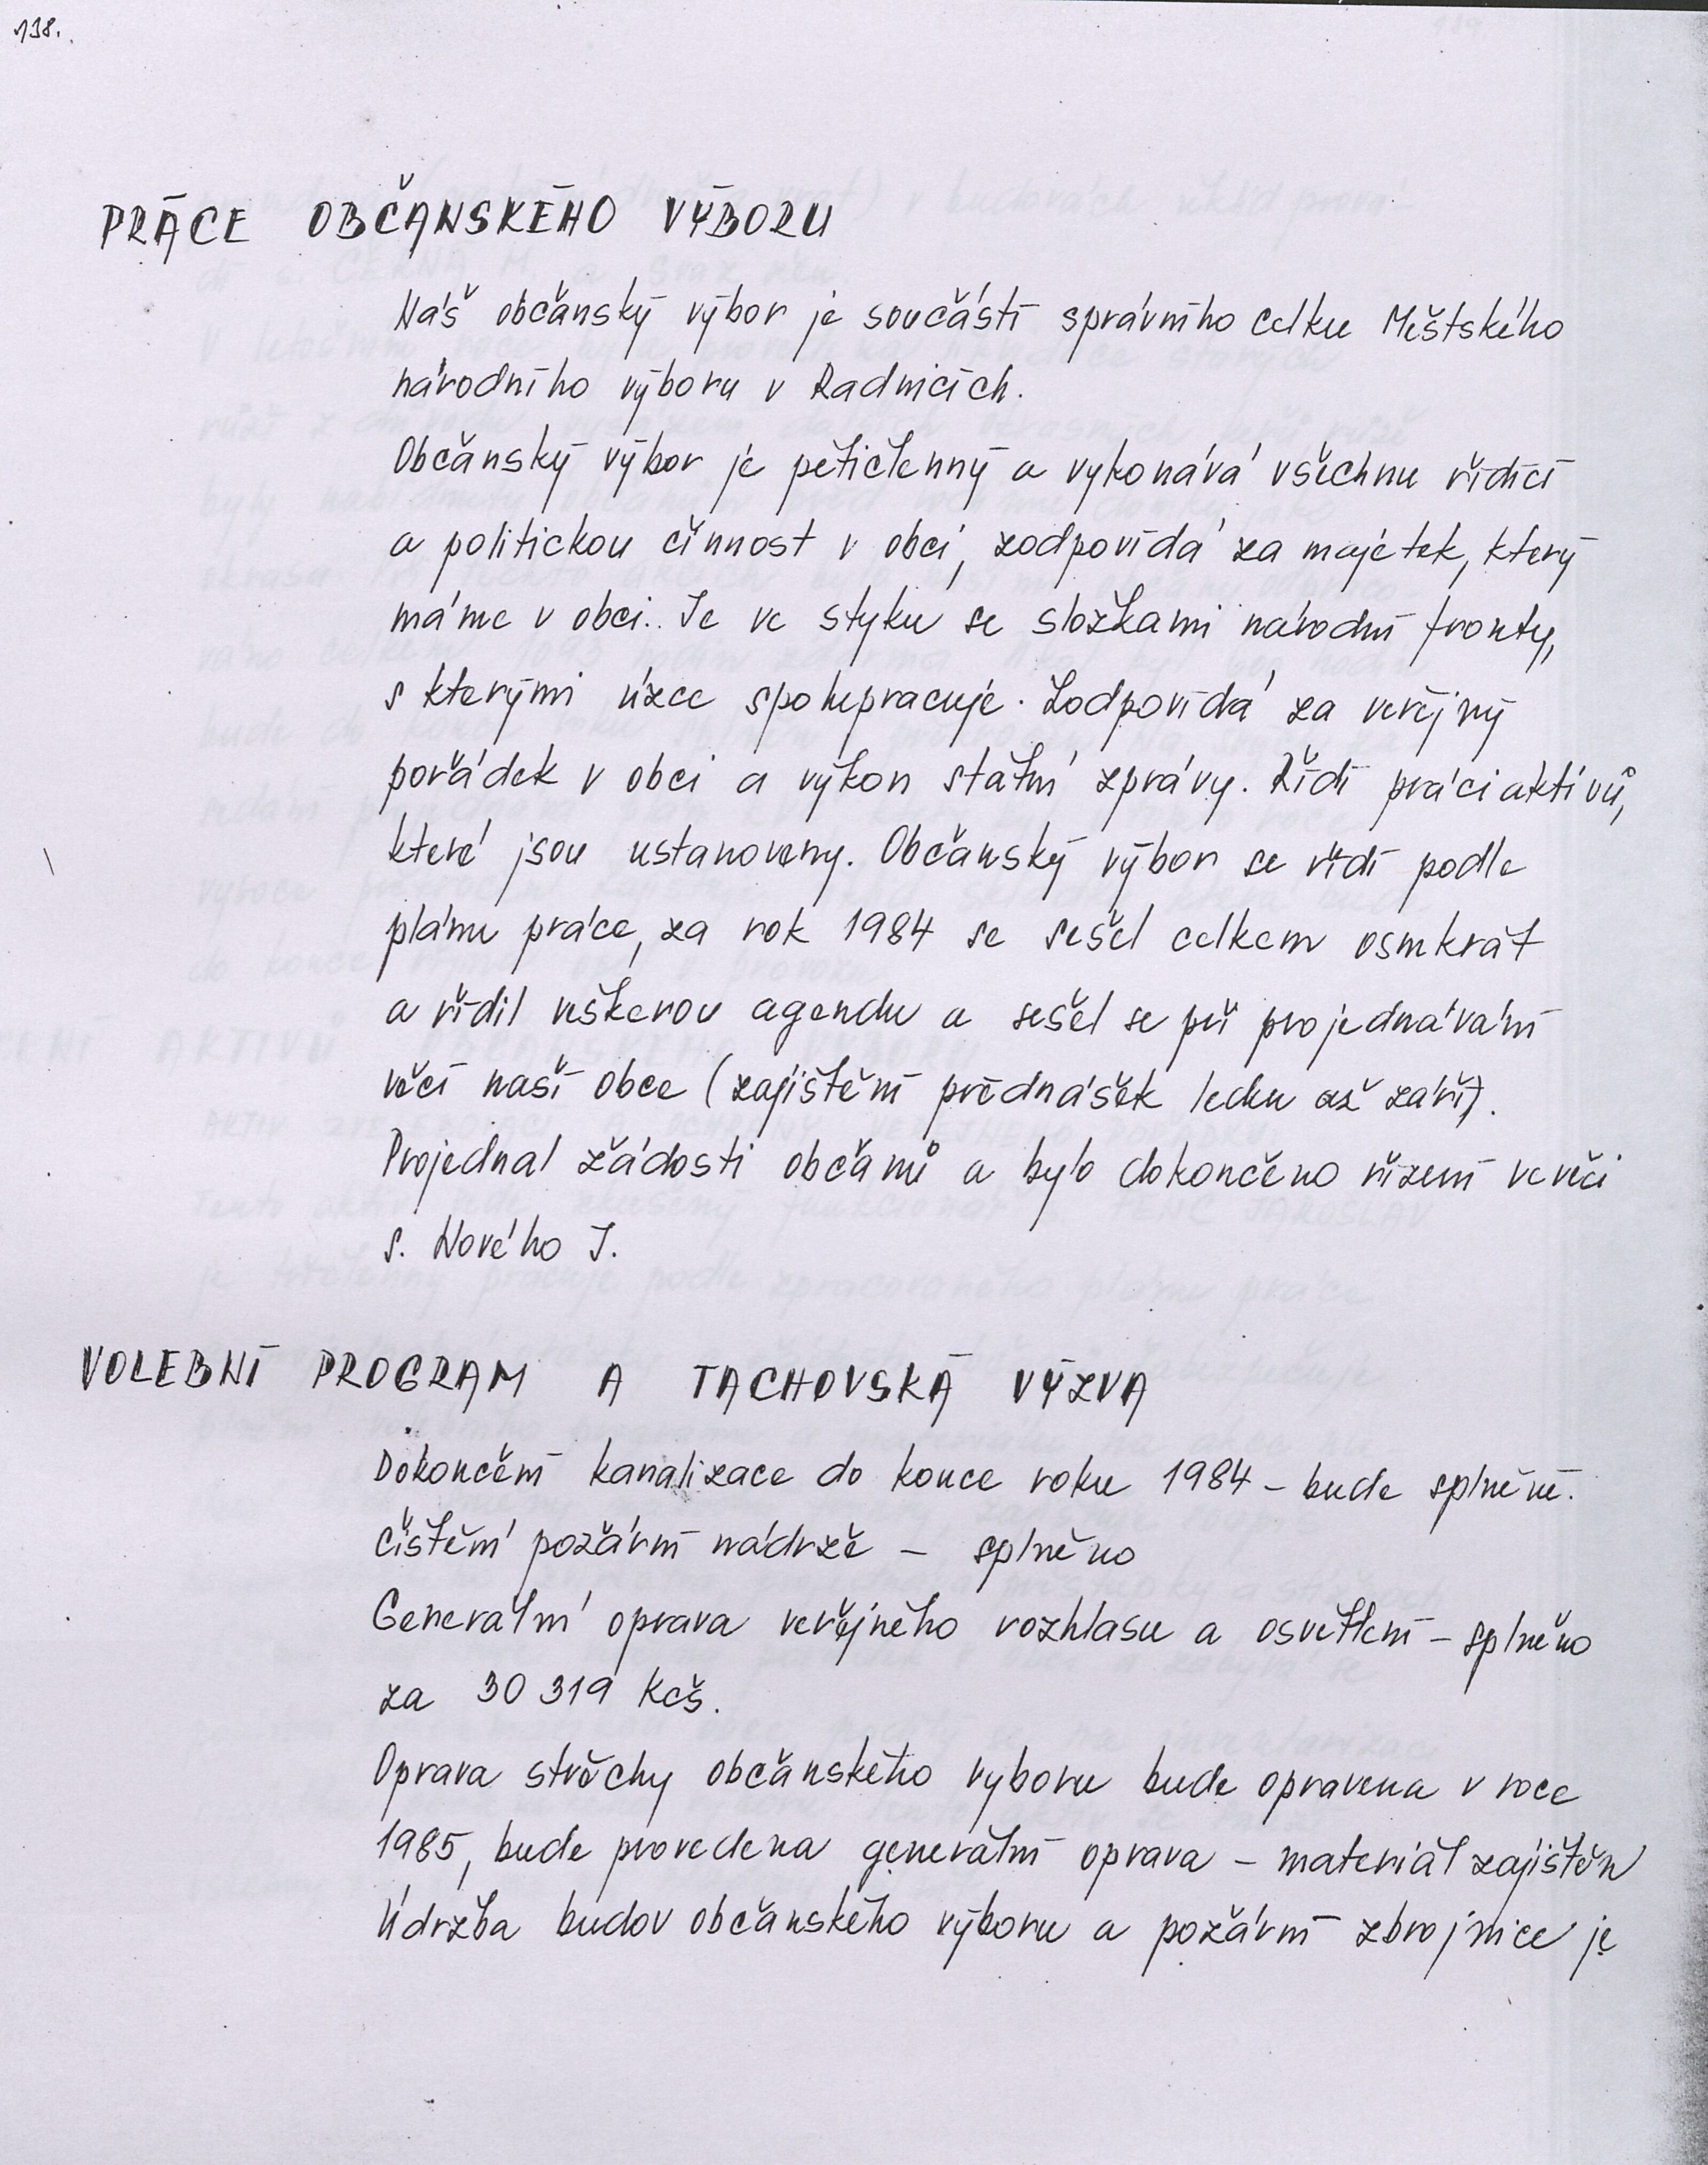 138.
PRÁCE OBČANSKÉHO VÝBORU
Náš občanský výbor je součástí správního celku Městského
národního výboru v Radnicích.
Občanský výbor je pětičlenný a vykonává všechnu řídící
a politickou činnost v obci, zodpovídá za majetek, který
máme v obci.. Je ve styku se složkami národní fronty,
s kterými úzce spolupracuje. Zodpovídá za veřejný
pořádek v obci a výkon státní zprávy. Řídí práci aktívů,
které jsou ustanoveny. Občanský výbor se řídí podle
plánu práce, za rok 1984 se sešel celkem osmkrát
a řídil veškerou agendu a sešel se při projednávání
věcí naší obce (zajištění přednášek ledu až září).
Projednal žádosti občanů a bylo dokončeno řízení ve věci
s. Nového J.
VOLEBNÍ PROGRAM A TACHOVSKÁ VÝZVA
Dokončení kanalizace do konce roku 1984 – bude splněné.
Čištění požární nádrže – splněno
Generální oprava veřejného rozhlasu a osvětlení – splněno
za 30 319 Kčs.
Oprava střechy občanského vyboru bude opravena v roce
1985, bude provedena generální oprava – materiál zajištěn
Údržba budov občanského výboru a požární zbrojnice je